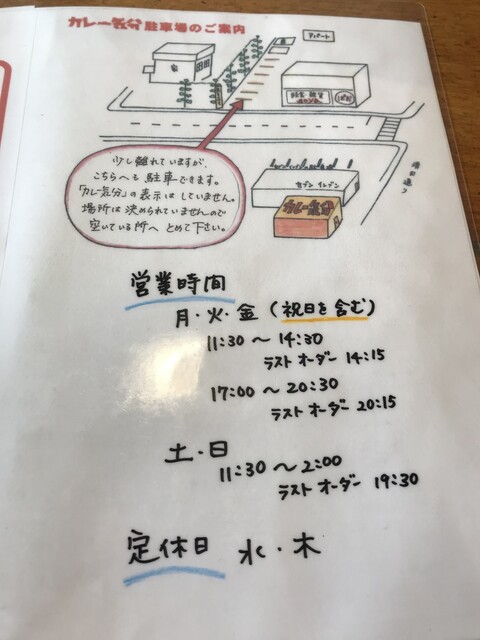 カレー気分 駐車場のご案内
アパート
家
セブンイレブン
カレー気分
少し離れていますが、
こちらへも駐車できます。
「カレー気分」の表示はしていません。
場所は決められていませんので
空いている所へとめて下さい。
営業時間
月・火・金（祝日を含む）
11:30〜14:30
ラストオーダー 14:15
17:00〜20:30
ラストオーダー 20:15
土・日
11:30〜2:00
ラストオーダー 19:30
定休日 水・木